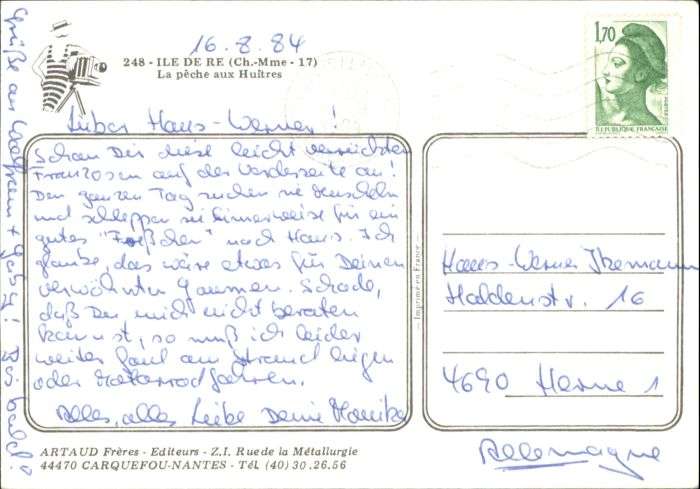 16.8.84
248 - ILE DE RE (Ch.-Mme - 17)
La pêche aux Huîtres
Lieber Hans-Werner!
Schau Dir diese leicht verrückten
Franzosen auf der Vorderseite an!
Den ganzen Tag suchen sie Muscheln
und schleppen sie eimerweise für ein
gutes "Freßchen" nach Haus. Ich
glaube, das wäre etwas für Deinen
verwöhnten Gaumen. Schade,
daß Du mich nicht beraten
kannst, so muß ich leider
weiter faul am Strand liegen
oder Motorrad fahren.
Alles, alles Liebe Deine Monika
Grüße an Wolfram + Gaby! Bis bald
1,70
REPUBLIQUE FRANÇAISE
Imprimé en France
Hans-Werner
Haldenstr. 16
4690 Herne 1
Allemagne
ARTAUD Frères - Editeurs - Z.I. Rue de la Métallurgie
44470 CARQUEFOU-NANTES - Tél. (40) 30.26.56